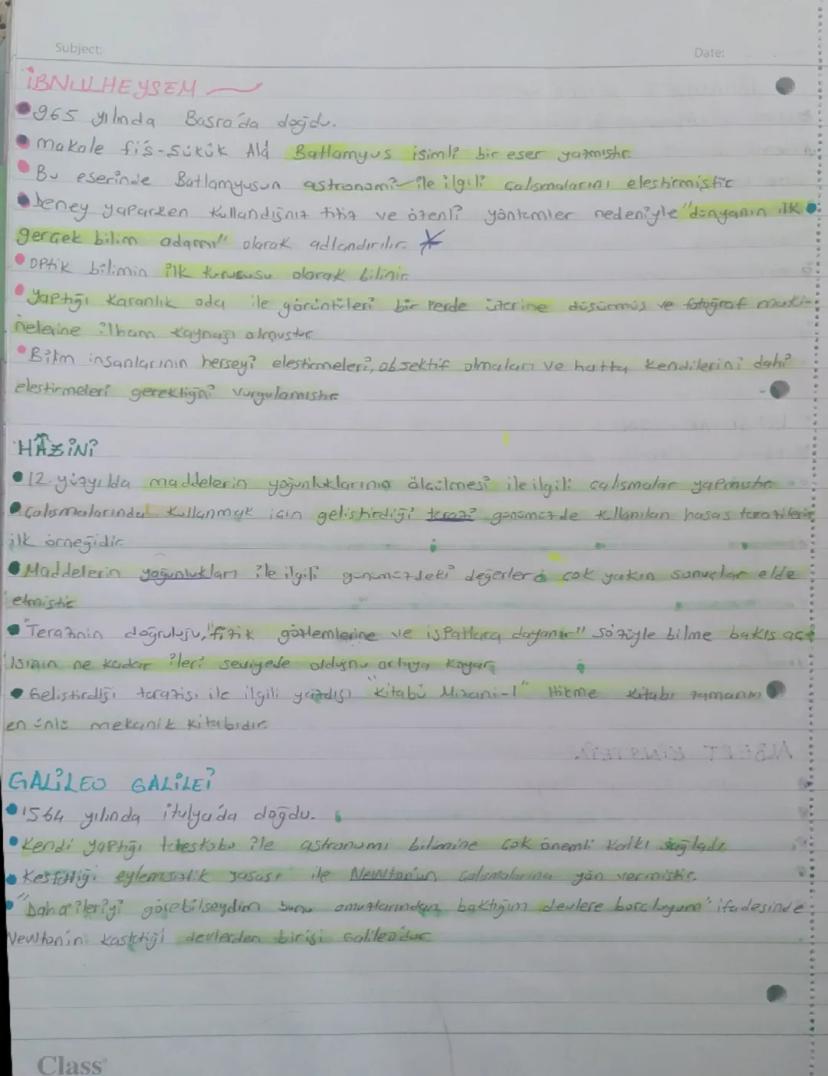 Subject:
Date:
İBNUL HEYSEM
965 yılında Basra'da doğdu.
Makale fis-sükük Ald Batlamyus isimli bir eser yazmıştır
Bu eserinde Batlamyusun astronomi ile ilgili çalısmalarını elestirmistir
Deney yaparken kullandığınız titiz ve özenli yöntemler nedeniyle "dünyanın ilk
gercek bilim adamı" olarak adlandırılır.
OPtik bilimin ilk kurucusu olarak bilinir
Yaptığı karanlık oda ile görüntüleri bir perde üzerine düsürmüs ve fotoğraf maki-
nelerine ilham kaynağı olmustur
Bilim insanlarının herseyi elestirmeleri, obsektif olmaları ve hatta kendilerini dahi
elestirmeleri gerektiğini vurgulamıstır
HÂZİNİ
12. yüzyılda maddelerin yoğunluklarının ölcülmesi ile ilgili calısmalar yapmıstır
Calısmalarında kullanmak icin gelistirdiği terazi günümüzde kullanılan hasas terazilerin
ilk örneğidir
Maddelerin yoğunlukları ile ilgili günümüzdeki değerlere cok yakın sonuclar elde
etmistir
"Terazinin doğruluğu, "fizik gözlemlerine ve ispatlara dayanır" sözüyle bilme bakıs acı
ısının ne kadar ileri seviyede olduğunu ortaya koyar
Gelistirdiği terazisi ile ilgili yazdığı "kitabü Mizani-l" Hikme kitabı zamanın
en ünlü mekanik kitabıdır
ALBERT EINSTEIN
GALİLEO GALİLEİ
1564 yılında italya'da doğdu.
Kendi yaptığı teleskobu ile astronomi bilimine cok önemli katkı sağladı
Kesfettiği eylemsizlik yasası ile Newton'un calısmalarına yön vermistir.
"Daha ileriyi görebilseydim bunu omuzlarından baktığım devlere borcluyum" ifadesinde
Newton'in kastettiği devlerden birisi Galileo'dur
Class